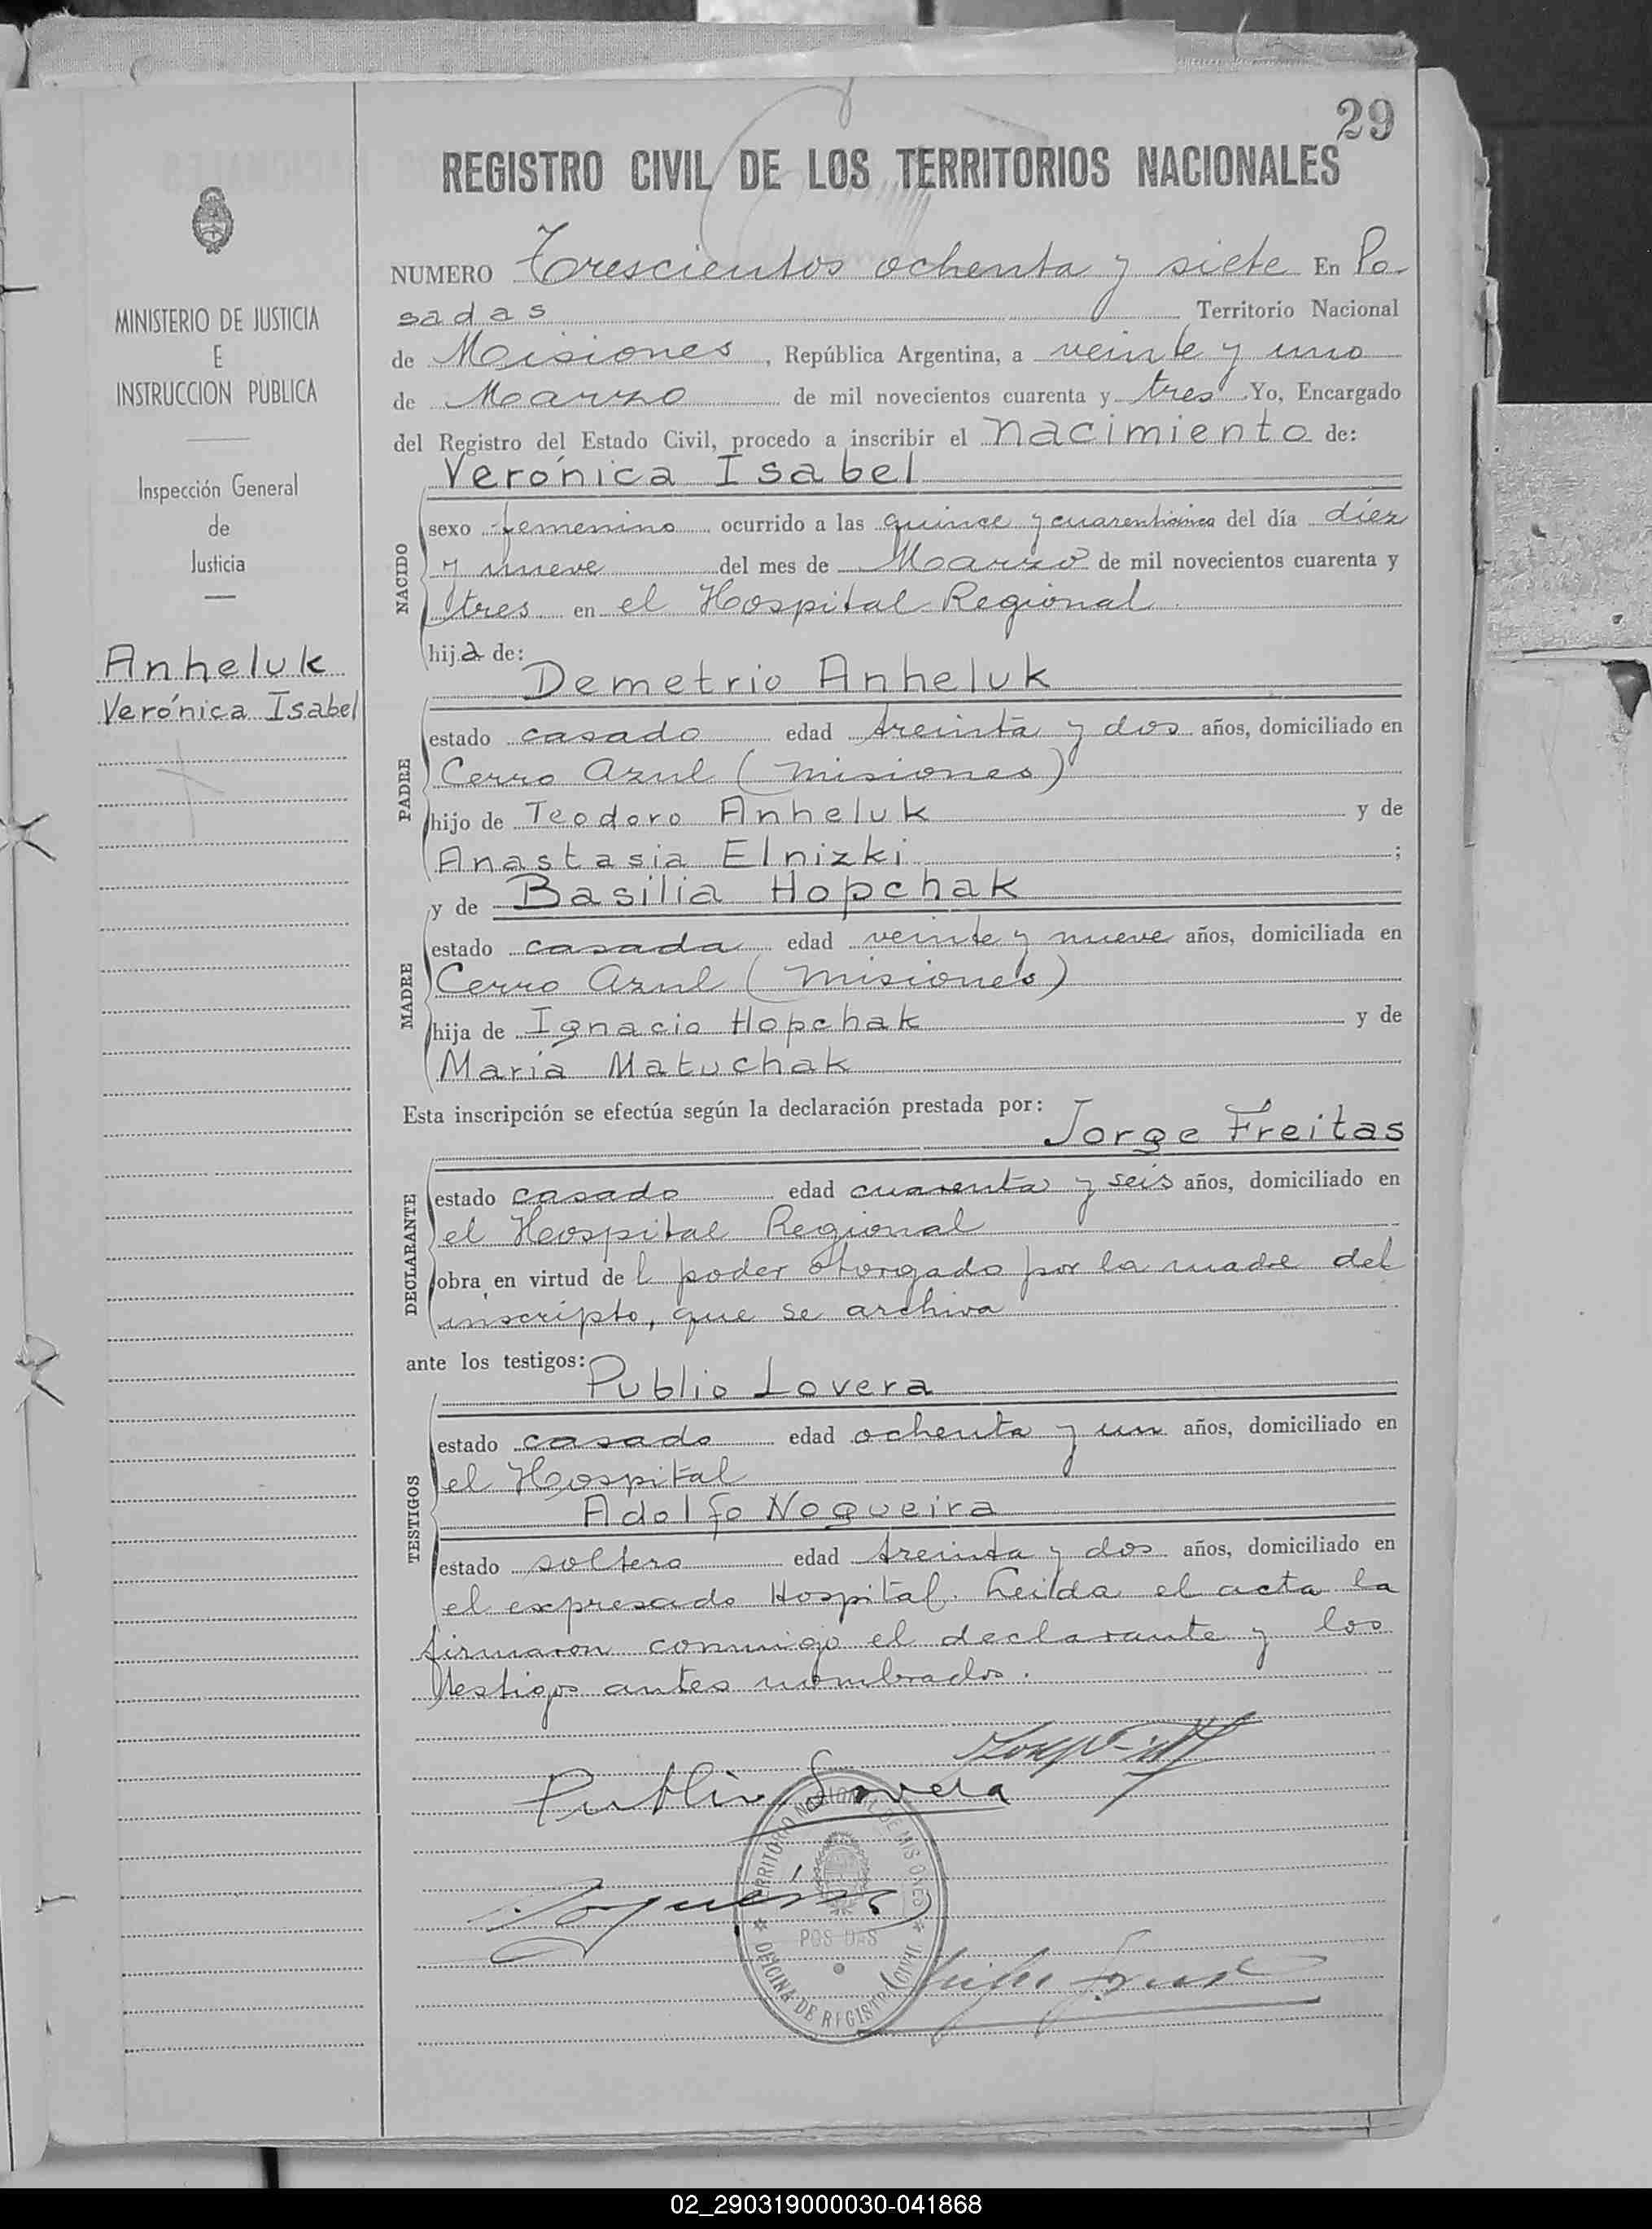 29
REGISTRO CIVIL DE LOS TERRITORIOS NACIONALES
MINISTERIO DE JUSTICIA
E
INSTRUCCION PÚBLICA
Inspección General
de
Justicia
Anheluk
Verónica Isabel
NUMERO Trescientos ochenta y siete En Po-
sadas Territorio Nacional
de Misiones, República Argentina, a veinte y uno
de Marzo de mil novecientos cuarenta y tres Yo, Encargado
del Registro del Estado Civil, procedo a inscribir el nacimiento de:
Verónica Isabel
NACIDO
sexo femenino ocurrido a las quince y del día diez
y nueve del mes de Marzo de mil novecientos cuarenta y
tres en el Hospital Regional
hija de:
Demetrio Anheluk
PADRE
estado casado edad treinta y dos años, domiciliado en
Cerro Azul (Misiones)
hijo de Teodoro Anheluk y de
Anastasia Elnizki ;
y de Basilia Hopchak
MADRE
estado casada edad veinte y nueve años, domiciliada en
Cerro Azul (Misiones)
hija de Ignacio Hopchak y de
María Matuchak
Esta inscripción se efectúa según la declaración prestada por:
Jorge Freitas
DECLARANTE
estado casado edad cuarenta y seis años, domiciliado en
el Hospital Regional
obra en virtud del poder otorgado por la madre del
inscripto, que se archiva
ante los testigos:
Publio Lovera
TESTIGOS
estado casado edad ochenta y un años, domiciliado en
el Hospital
Adolfo Nogueira
estado soltero edad treinta y dos años, domiciliado en
el expresado Hospital. Leída el acta la
firmaron conmigo el declarante y los
testigos antes nombrados.
Publio Lovera
TERRITORIO NACIONAL DE MISIONES
POSADAS
OFICINA DE REGISTRO CIVIL
02_290319000030-041868